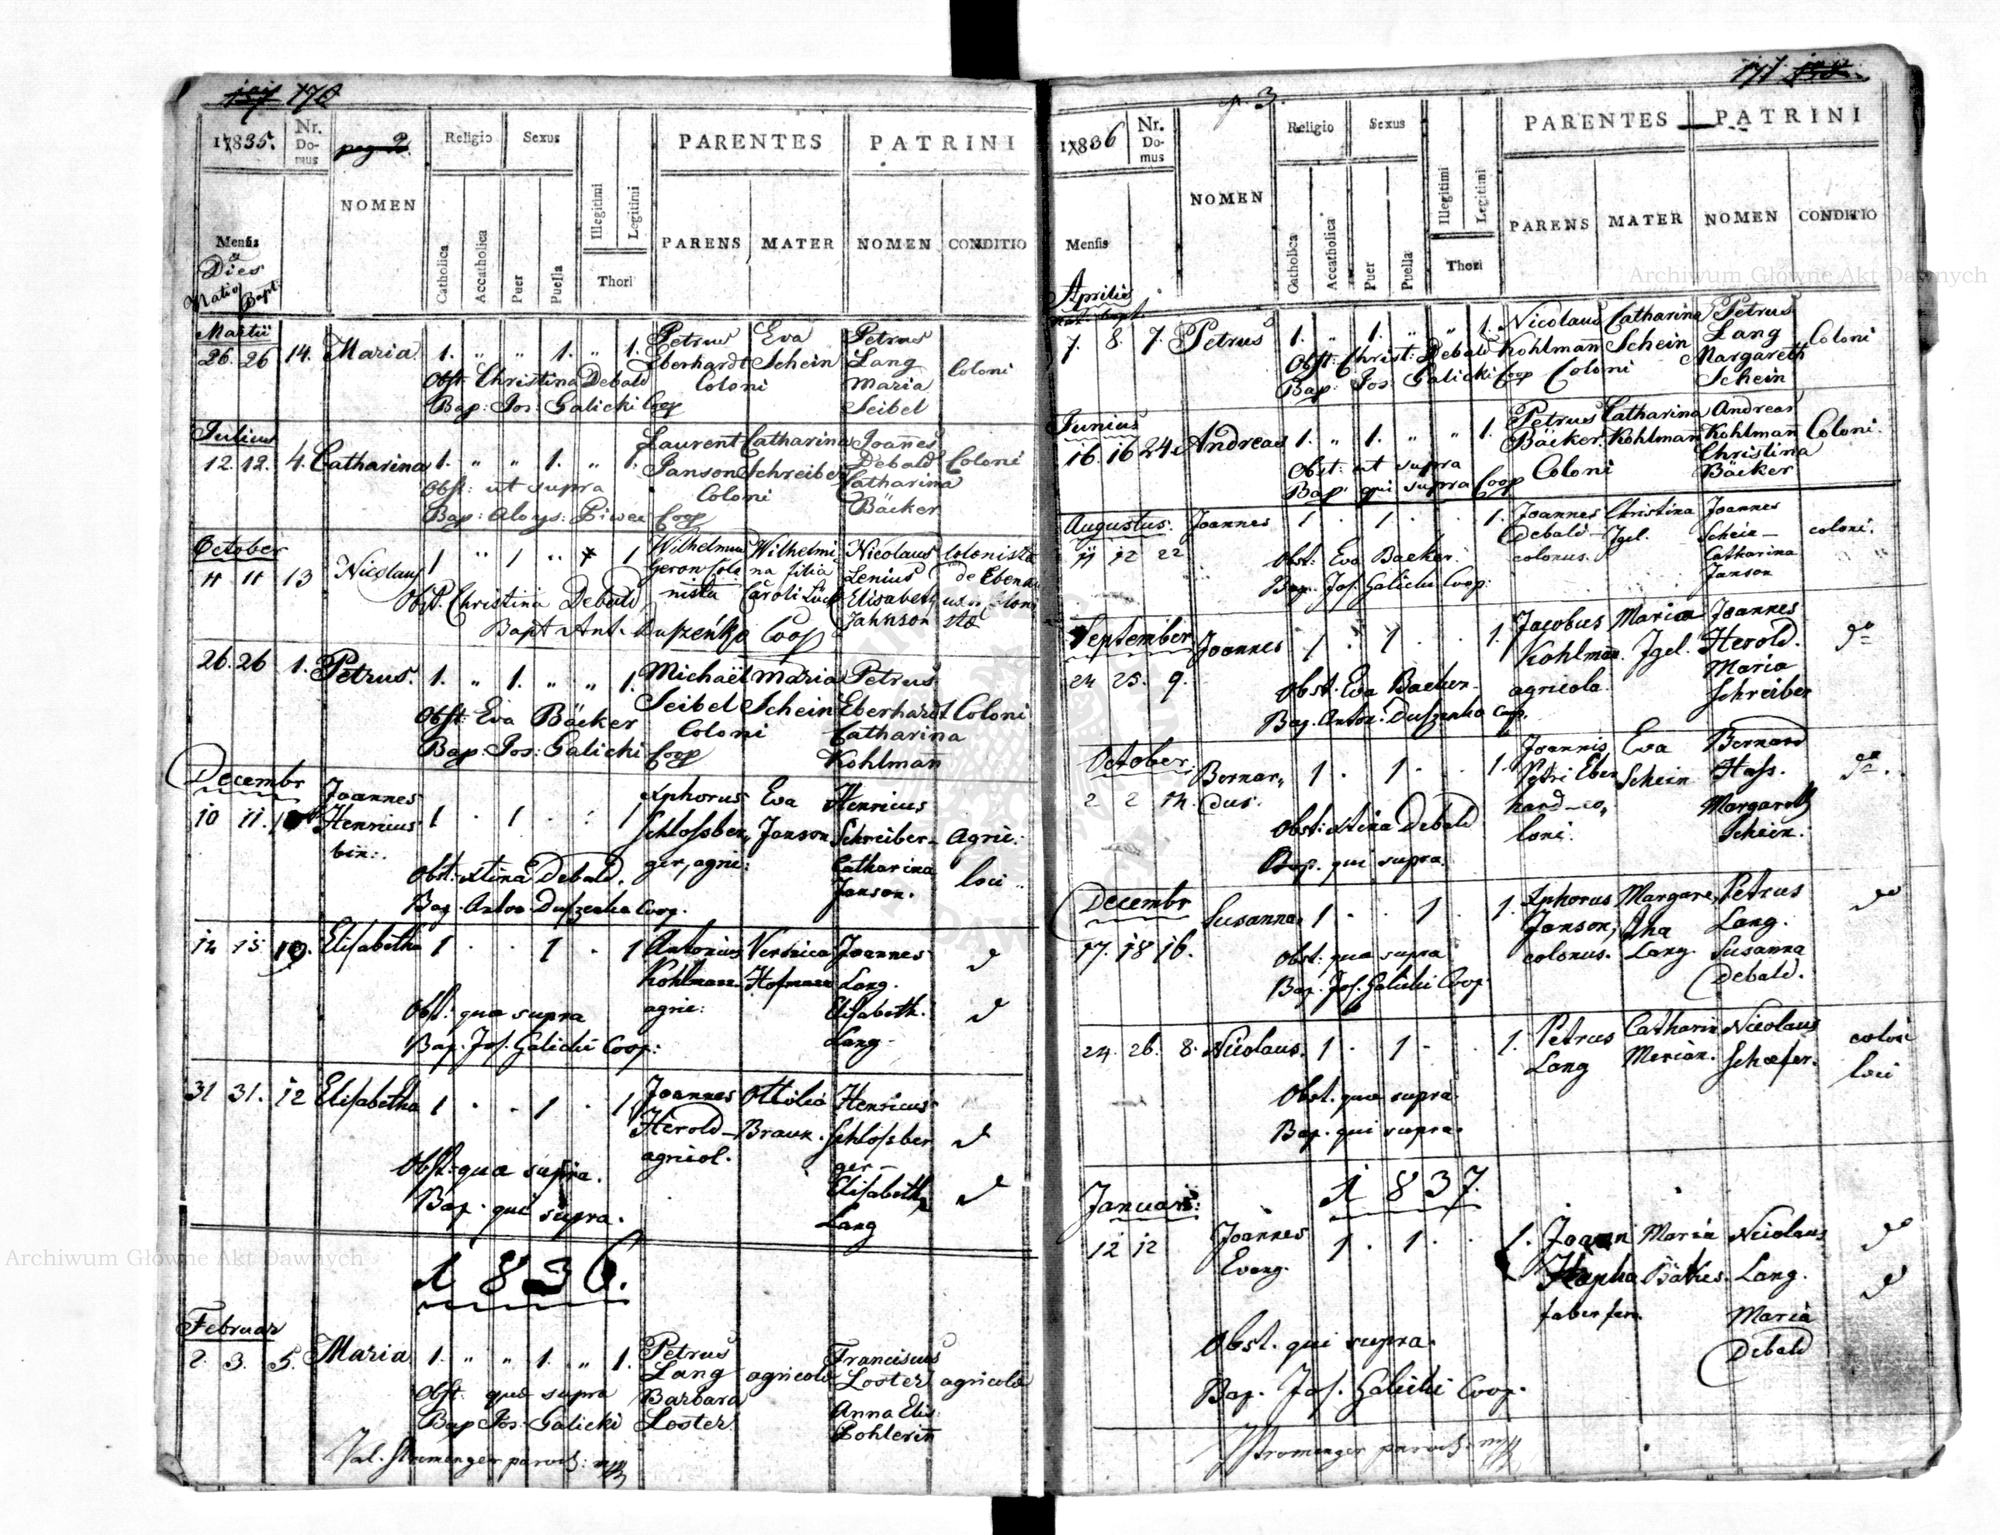 170
1835.
Nr. Domus
pag 2.
NOMEN
Religio
Sexus
PARENTES
PATRINI
Illegitimi
Legitimi
Mensis
et
Dies
Natio
Bapt:
Catholica
Accatholica
Puer
Puella
Thori
PARENS
MATER
NOMEN
CONDITIO
Martii
26. 26 14. Maria 1. " " 1. " 1. Petrus Eva Petrus
Eberhardt Schein Lang Coloni
Obst: Christina Debald Coloni Maria
Bap: Jos: Galicki Coop Seibel
Julius
12. 12. 4. Catharina 1. " " 1. " 1. Laurent Catharina Joanes
Janson Schreiber Debald Coloni
Obst: ut supra Coloni Catharina
Bap: Aloys: Piwec Coop Bäcker
October
11 11 13 Nicolaus 1 " 1 " 1 Wilhelmus Wilhelmi Nicolaus colonista
Geron Colo na filia Lenius de Ebenau
nista Caroli Lück Elisabeth
Obst. Christina Debald Jahnson
Bapt Ant. Duszeńko Coop
26. 26 1. Petrus. 1. " 1. " " 1. Michaël Maria Petrus
Seibel Schein Eberhardt Coloni
Obst: Eva Bäcker Coloni Catharina
Bap: Jos: Galicki Coop Kohlman
Decembr
10 11. Joannes Henricus bin:. 1 . 1 . . 1 Xphorus Eva Henricus
Schlossber„ Janson Schreiber Agric:
ger, agric: Catharina loci
Obst: Xtina Debald. Janson.
Bap. Anton Duszenko Coop.
14 15 10. Elisabetha 1 . . 1 . 1 Antonius Veronica Joannes
Kohlmann Hofmann Lang.
Obst: quae supra agric: Elisabeth.
Bap. Jos. Galicki Coop: Lang
31 31. 12 Elisabetha 1 . . 1 . 1 Joannes Ottilia Henricus
Herold Braun. Schlossber
agricol. ger
Obst: quae supra. Elisabeth
Bap. qui supra. Lang
1836.
Februar
2. 3. 5. Maria 1. " " 1. " 1. Petrus Franciscus
Lang agricola Loster agricola
Obst: quae supra Barbara Anna Elis:
Bap Jos: Galicki Loster Pohlerin
Val. Stromenger paroch: mpp
171
p. 3.
1836
Nr. Domus
NOMEN
Religio
Sexus
PARENTES
PATRINI
Illegitimi
Legitimi
Mensis
Catholica
Accatholica
Puer
Puella
Thori
PARENS
MATER
NOMEN
CONDITIO
Aprilis
nat. bapt.
7. 8. 7. Petrus 1. " 1. " " 1. Nicolaus Catharina Petrus
Kohlman Schein Lang Coloni
Obst: Christ: Debald Coloni Margareth
Bap: Jos: Galicki Coop Schein
Junius
16. 16 24. Andreas 1. " 1. " " 1. Petrus Catharina Andreas
Bäcker. Kohlman Kohlman Coloni.
Obst: ut supra Coloni Christina
Bap: qui supra Coop Bäcker
Augustus.
11 12 22 Joannes 1 . 1 . . 1. Joannes Christina Joannes
Debald Jgel. Schein coloni.
colonus. Catharina
Obst: Eva Baeker. Janson
Bap. Jos. Galicki Coop:
September
24 25. 9. Joannes 1 . 1 . . 1. Jacobus Maria Joannes
Kohlman. Jgel. Herold. do
agricola. Maria
Obst. Eva Baeker. Schreiber
Bap. Anton: Duszenko Coop.
October
2 2 14. Bernar„ dus. 1 . 1 . . 1. Joannis Eva Bernard
Petri Eber Schein Hass. do
hard co„ Margareth
loni. Schein.
Obst: Xtina Debald
Bap. qui supra.
Decembr
17. 18 16. Susanna 1 . . 1 . 1. Xphorus Margare„ Petrus
Janson, tha Lang. do
colonus. Lang. Susanna
Debald.
Obst: qua supra
Bap. Jos. Galicki Coop
24 26. 8. Nicolaus. 1 . 1 . . 1. Petrus Catharin Nicolaus coloni
Lang Merian. Schaefer. loci
Obst. quae supra.
Bap. qui supra.
1837.
Januari:
12 12 Joannes Evang. 1 . 1 . . 1. Joann Maria Nicolaus
Hapka Bäkes. Lang.
faber fer. Maria
Debald
Obst. qui supra.
Bap. Jos. Galicki Coop.
VStromenger paroch: mpp
Archiwum Główne Akt Dawnych
Archiwum Główne Akt Dawnych